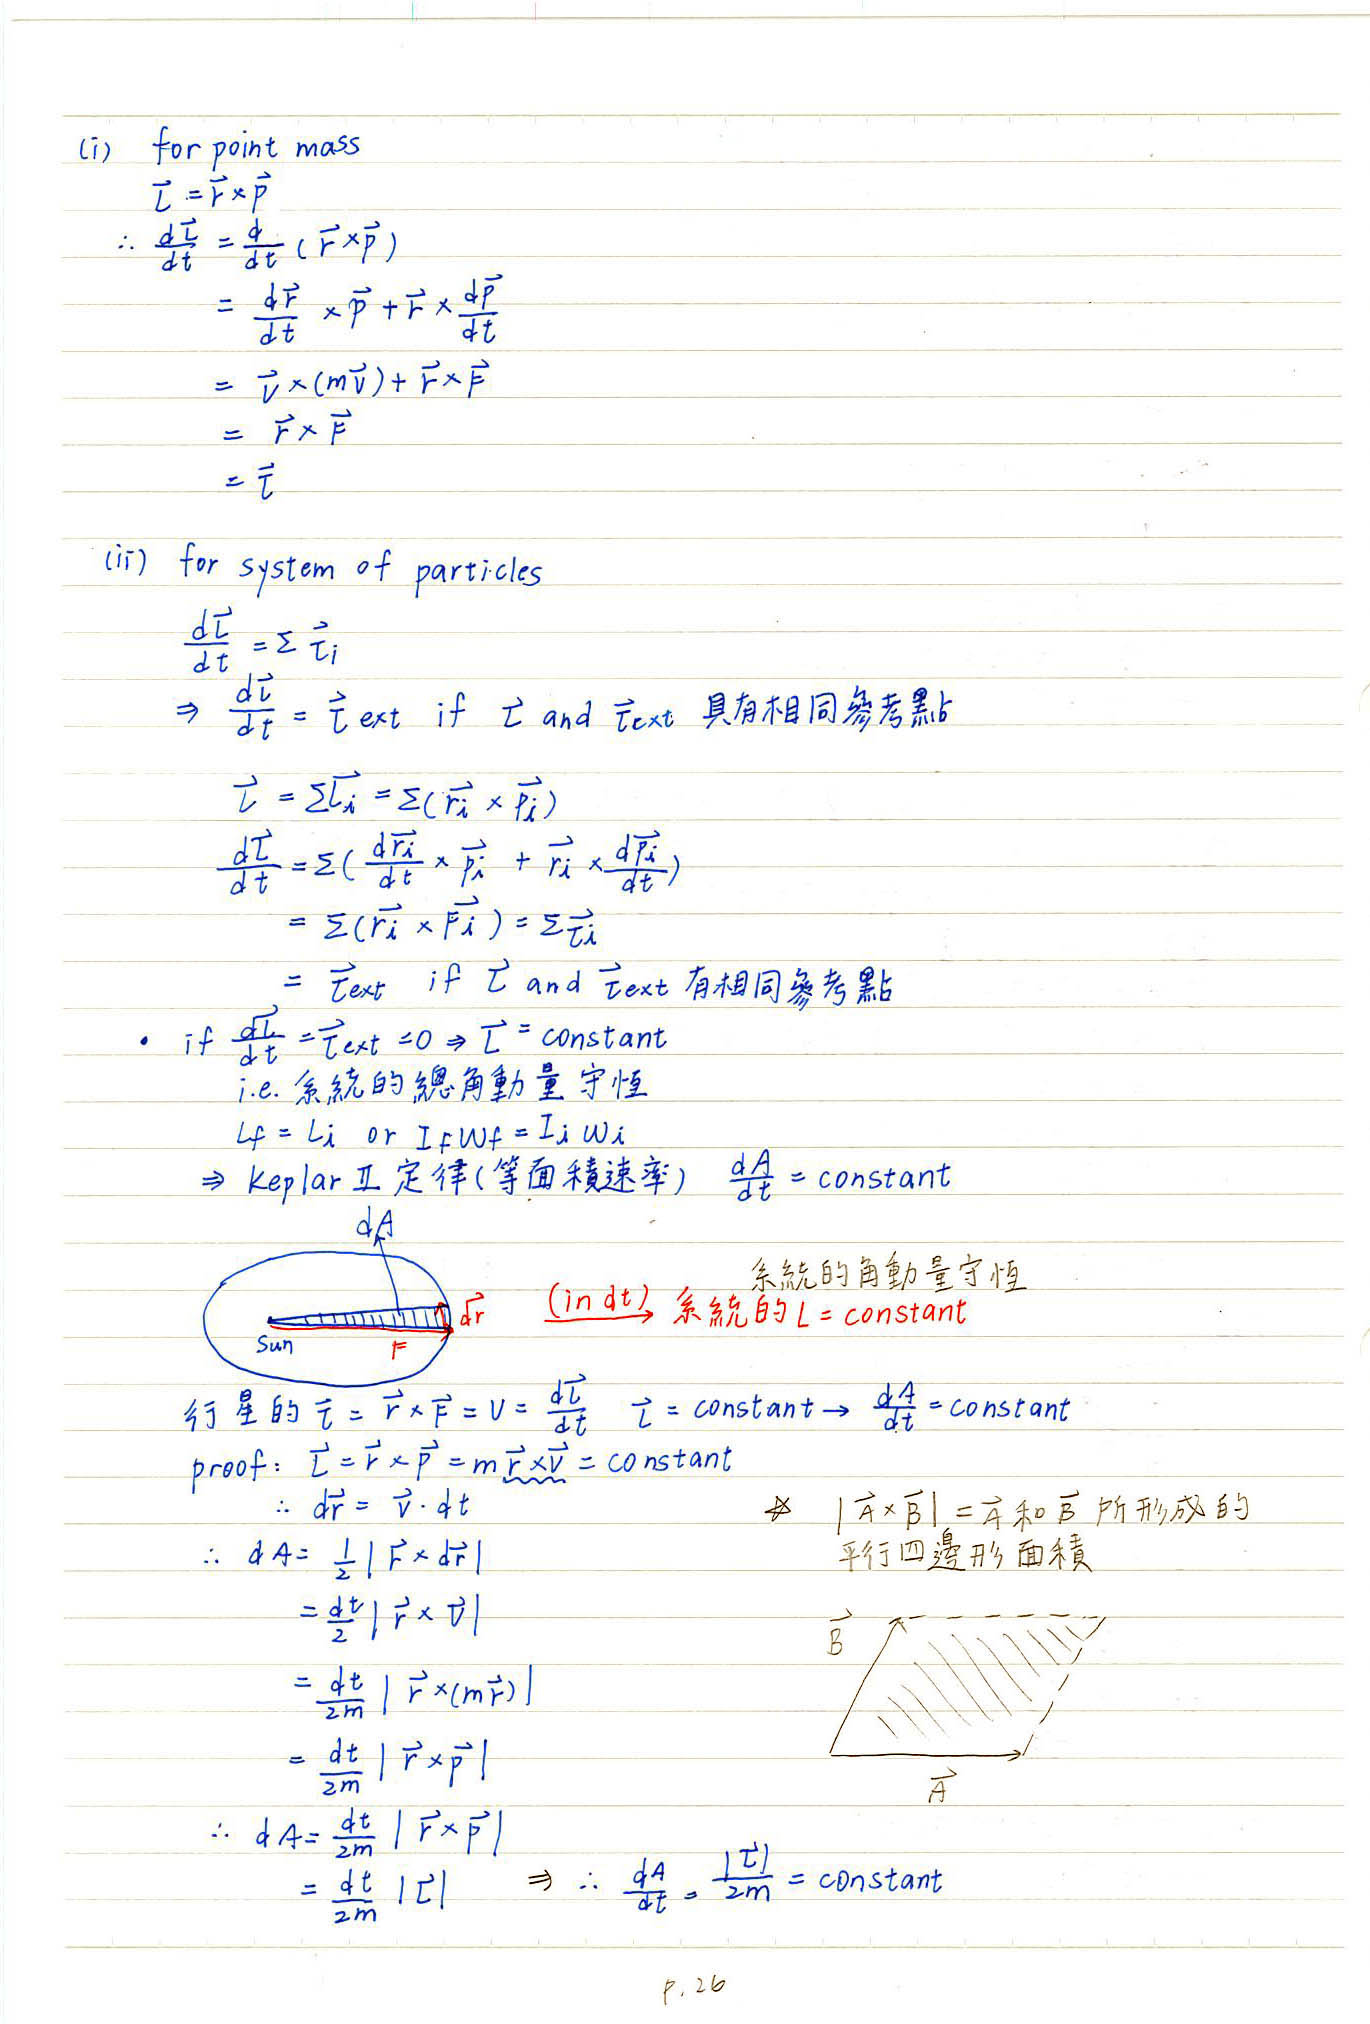 (i) for point mass
L⃗ = r⃗ × p⃗
∴ dL⃗/dt = d/dt (r⃗ × p⃗)
= dr⃗/dt × p⃗ + r⃗ × dp⃗/dt
= v⃗ × (mv⃗) + r⃗ × F⃗
= r⃗ × F⃗
= τ⃗
(ii) for system of particles
dL⃗/dt = Σ τ⃗i
⇒ dL⃗/dt = τ⃗ext if L⃗ and τ⃗ext 具有相同參考點
L⃗ = ΣL⃗i = Σ(r⃗i × p⃗i)
dL⃗/dt = Σ( dr⃗i/dt × p⃗i + r⃗i × dp⃗i/dt )
= Σ(r⃗i × F⃗i) = Στ⃗i
= τ⃗ext if L⃗ and τ⃗ext 有相同參考點
• if dL⃗/dt = τ⃗ext = 0 ⇒ L⃗ = constant
i.e. 系統的總角動量守恆
Lf = Li or IfWf = IiWi
⇒ Keplar II 定律(等面積速率) dA/dt = constant
dA
系統的角動量守恆
dr⃗ (in dt)→ 系統的L = constant
Sun r
行星的 τ⃗ = r⃗ × F⃗ = 0 = dL⃗/dt L⃗ = constant → dA/dt = constant
proof: L⃗ = r⃗ × p⃗ = m r⃗ × v⃗ = constant
∴ dr⃗ = v⃗ · dt
☆ |A⃗ × B⃗| = A⃗ 和 B⃗ 所形成的
平行四邊形面積
∴ dA = 1/2 | r⃗ × dr⃗ |
= dt/2 | r⃗ × v⃗ |
B⃗
= dt/2m | r⃗ × (mr⃗) |
= dt/2m | r⃗ × p⃗ |
A⃗
∴ dA = dt/2m | r⃗ × p⃗ |
= dt/2m |L⃗| ⇒ ∴ dA/dt = |L⃗|/2m = constant
P.26